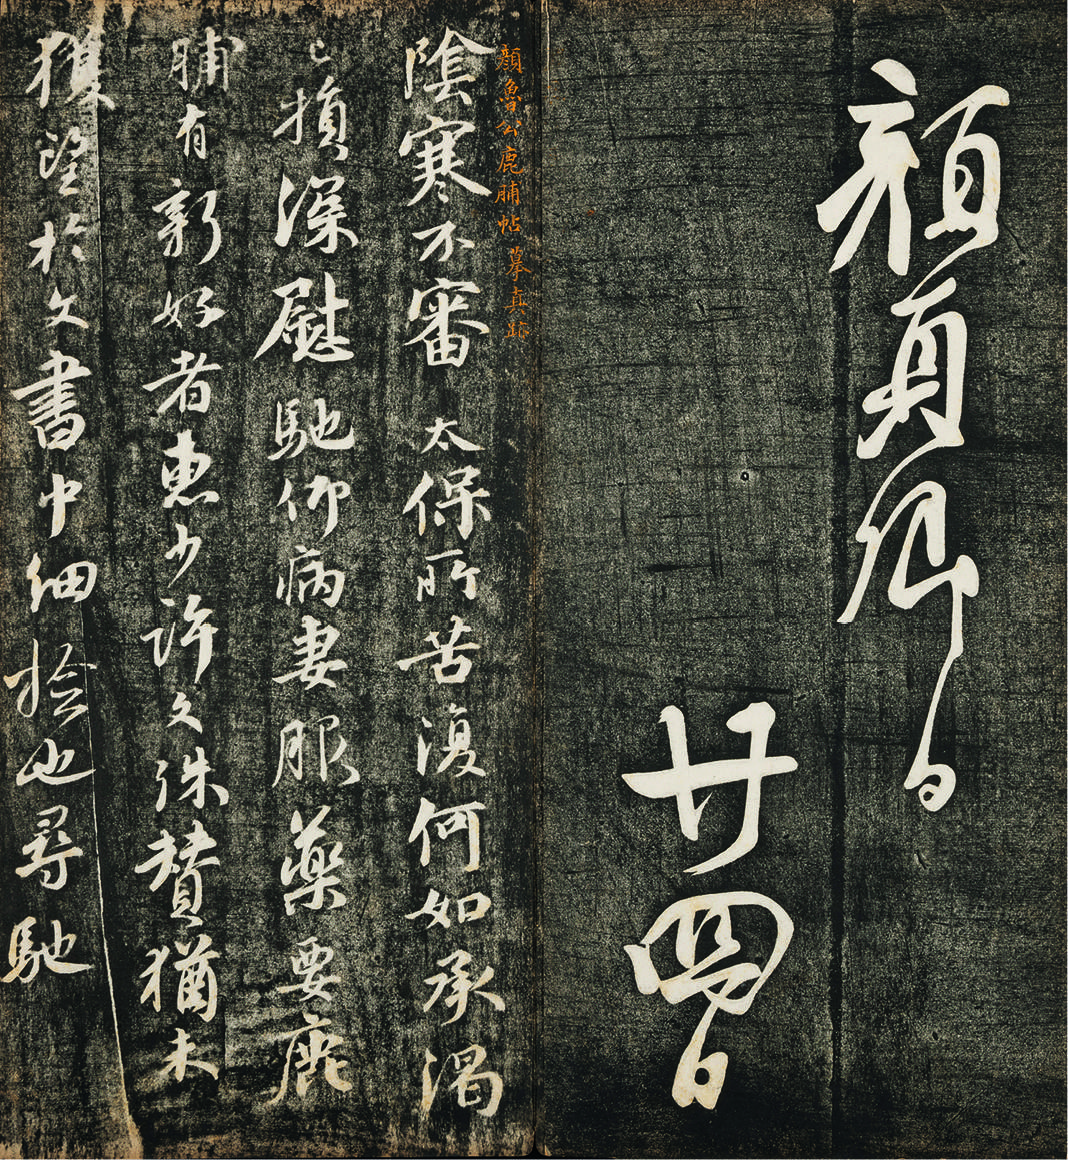 顏真卿白
廿四日
顏魯公鹿脯帖 摹真跡
陰寒不審太保所苦復何如承渴
已損深慰馳仰病妻服藥要鹿
脯有新好者惠少許文殊贊猶未
獲望於文書中細撿也尋馳